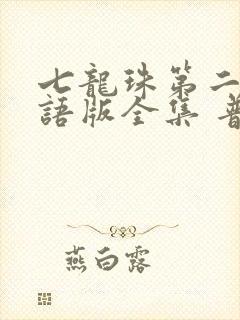 七龍珠第二
語版全集 普
燕白露